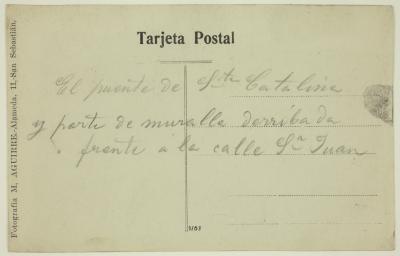 Tarjeta Postal
El puente de Sta Catalina
y parte de muralla derribada
frente á la calle Sn Juan
Fotografía M. AGUIRRE-Alameda, 11.-San Sebastián.